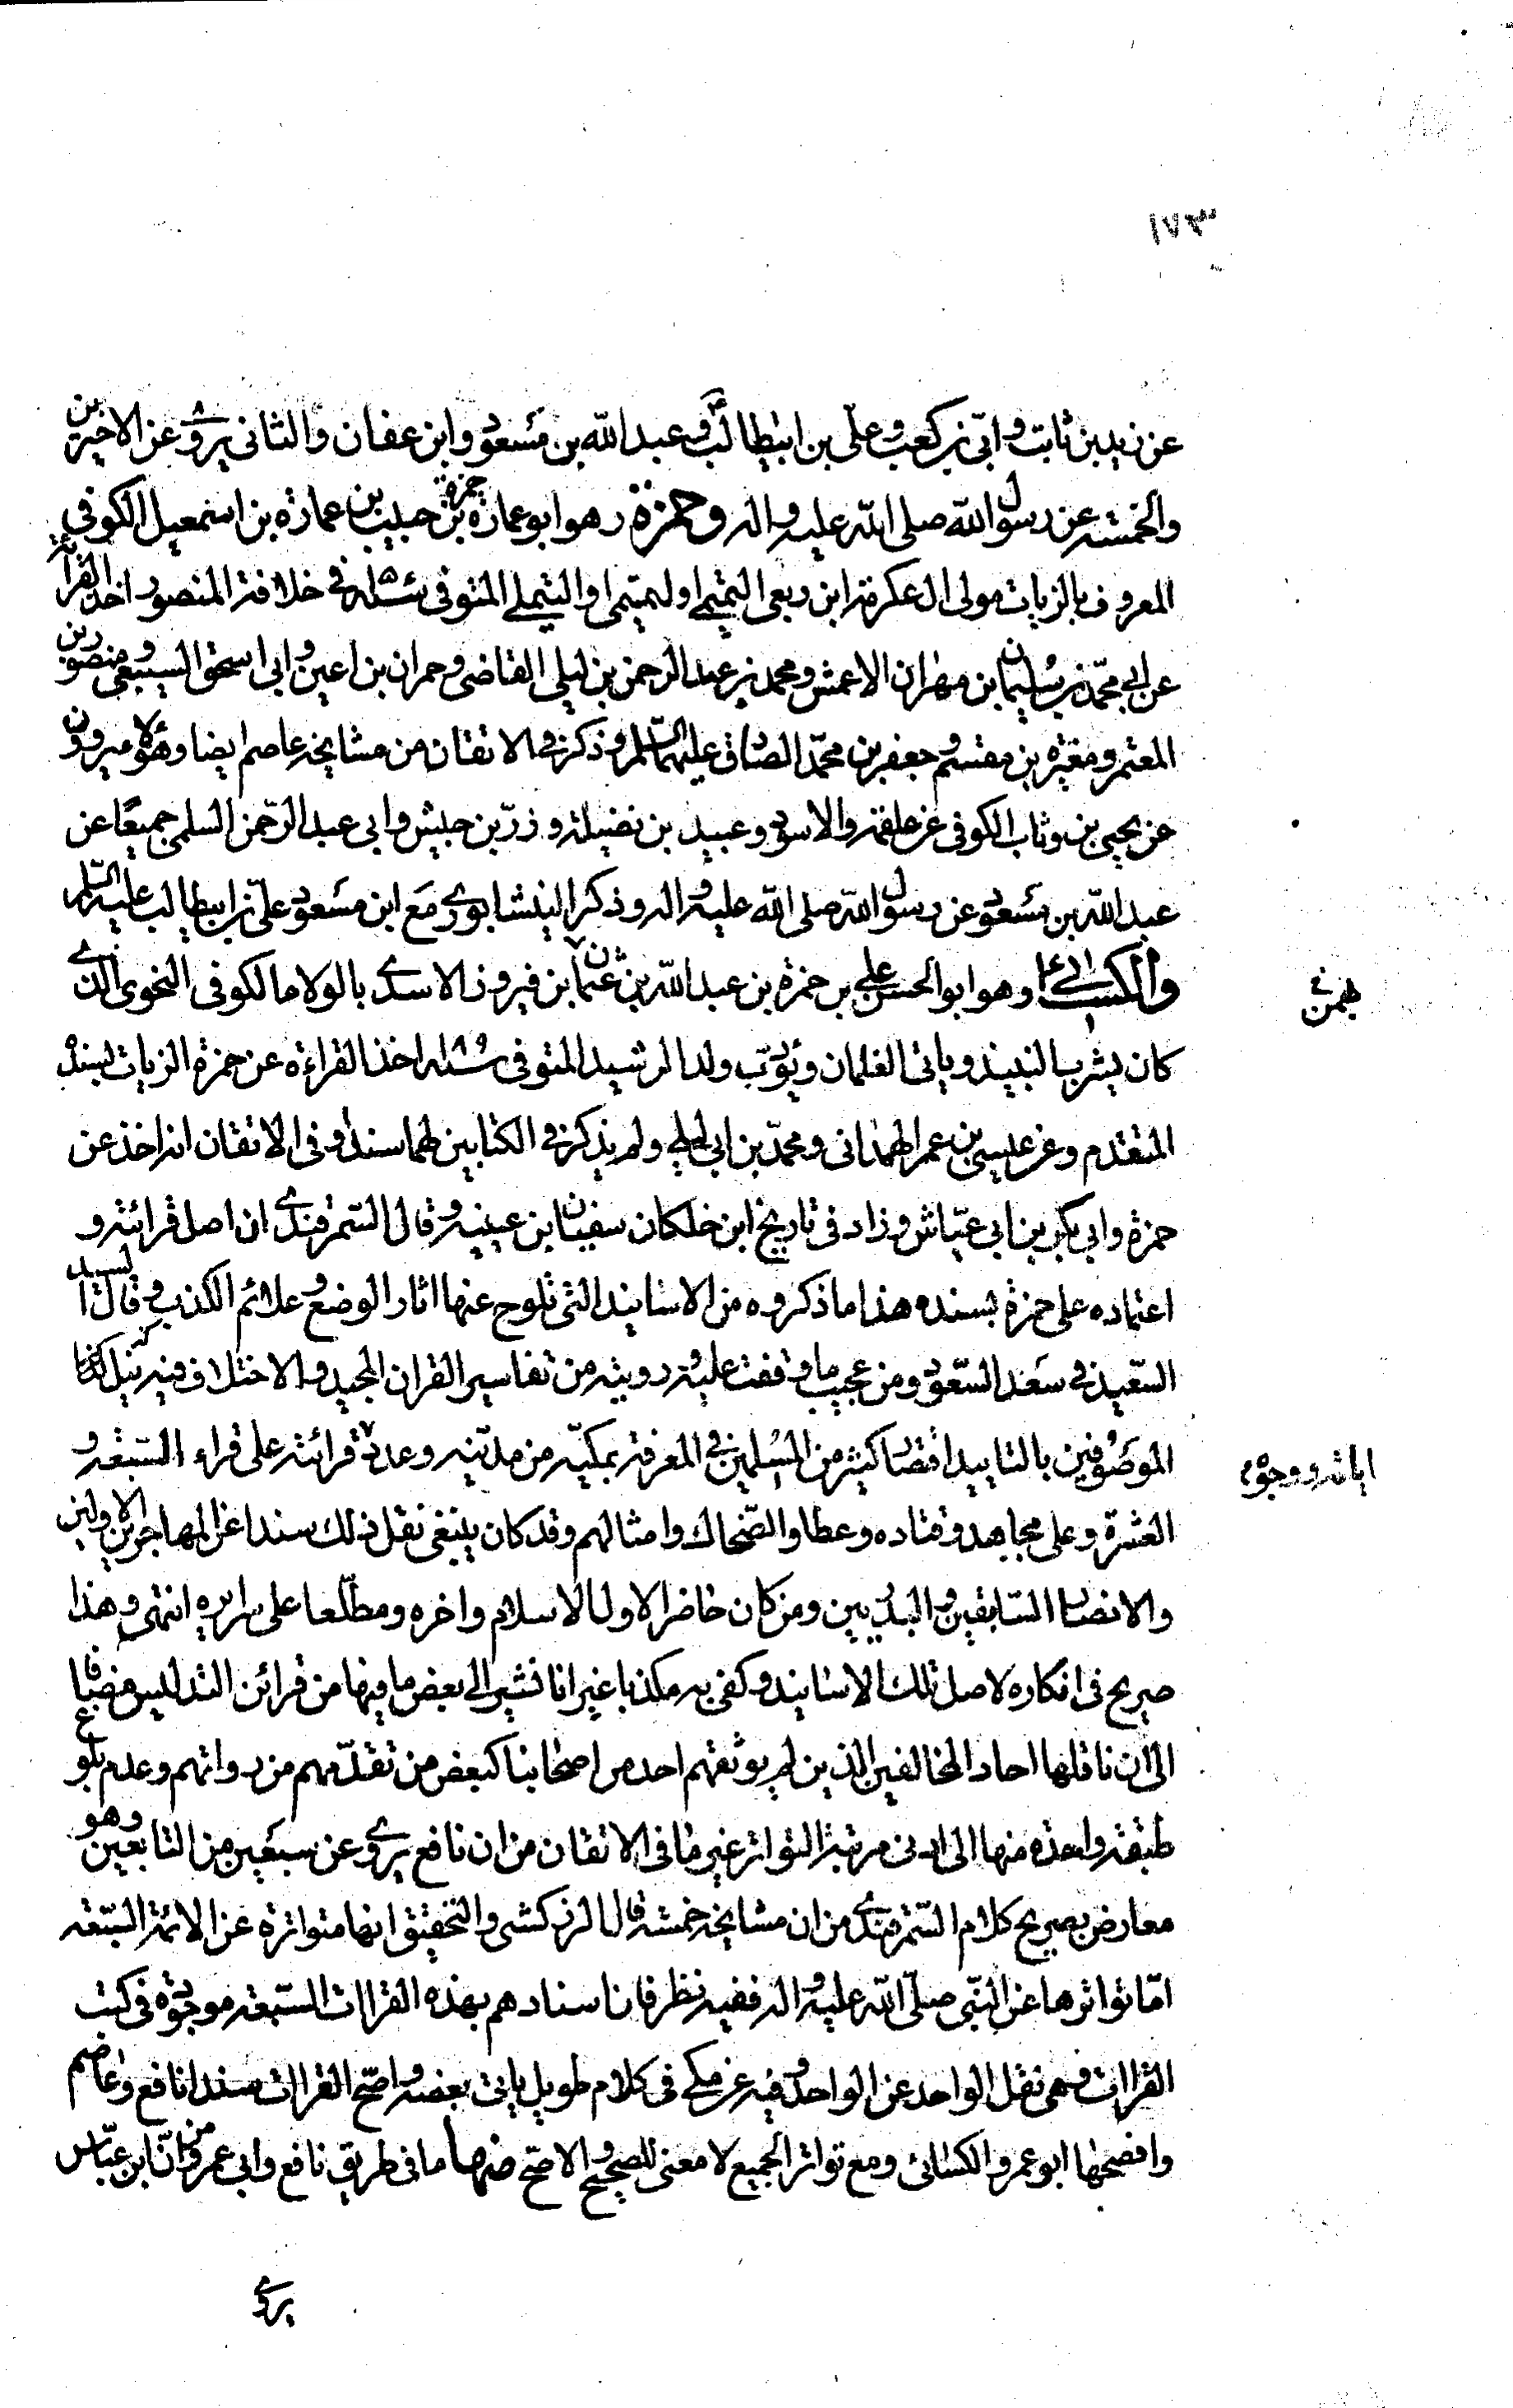 ١٧٣
عن زيد بن ثابت وابي بن كعب وعلي بن ابيطالب وعبد الله بن مسعود وابن عفان والثاني يروى عن الاخيرين
والخمسة عن رسول الله صلى الله عليه واله وحمزة وهو ابو عمارة حمزة بن حبيب بن عمارة بن اسمعيل الكوفي
المعروف بالزيات مولى ال عكرمة ابن ربعى التميمي او التيملي المتوفى في خلافة المنصور اخذ القرائة
عن ابي محمد بن سليمان بن مهران الاعمش ومحمد بن عبد الرحمن بن ليلى القاضي وحمران بن اعين وابي اسحق السبيعي ومنصور بن
المعتمر ومغيرة بن مقسم وجعفر بن محمد الصادق عليهما السلم وذكر في الاتقان من مشايخه عاصم ايضا وهؤلاء يروون
عن يحيى بن وثاب الكوفي عن علقمة والاسود وعبيد بن نضيلة وزر بن حبيش وابي عبد الرحمن السلمى جميعًا عن
عبد الله بن مسعود عن رسول الله صلى الله عليه واله وذكر النيشابورى مع ابن مسعود علي بن ابيطالب عليه السلم
والكسائى وهو ابو الحسن علي بن حمزة بن عبد الله بن عثمان بن فيروز الاسدى بالولاء الكوفي النحوى الذى
كان يشرب النبيذ وياتى الغلمان ويؤدب ولد الرشيد المتوفى اخذ القراءة عن حمزة الزيات بسنده
المتقدم وعن عيسى بن عمر الهمداني ومحمد بن ابي ليلى ولم يذكر في الكتابين لهما سندا وفى الاتقان انه اخذ عن
حمزة وابي بكر بن ابي عياش وزاد في تاريخ ابن خلكان سفيان ابن عيينه وقال السمرقندى ان اصل قرائته و
اعتماده على حمزة بسنده هذا ما ذكروه من الاسانيد التى تلوح عنها اثار الوضع وعلائم الكذب وقال السيد
السعيد في سعد السعود ومن عجيب ما وقفت عليه ورويته من تفاسير القران المجيد والاختلاف فيه
الموصوفين بالتاييد اقتصار كثير من المسلمين في المعرفة بمكيه من مدنيه وعدد قرائته على قراء السبعة و
العشرة وعلى مجاهد وقتاده وعطا والضحاك وامثالهم وقد كان ينبغى نقل ذلك سندا عن المهاجرين الاولين
والانصار السابقين والبدريين ومن كان حاضرا لاول الاسلام واخره ومطلعا على سرايره انتهى وهذا
صريح في انكاره لاصل تلك الاسانيد وكفى به مكذبا غير انا نشير الى بعض ما فيها من قرائن التدليس مضافا
الى ان ناقلها احاد المخالفين الذين لم يوثقهم احد من اصحابنا كبعض من تقدمهم من رواتهم وعدم بلوغ
طبقة واحدة منها الى ادنى مرتبة التواتر غير ما فى الاتقان من ان نافع يروى عن سبعين من التابعين وهو
معارض بصريح كلام السمرقندى من ان مشايخه خمسة قال الزركشى والتحقيق انها متواترة عن الائمة السبعة
اما تواترها عن النبى صلى الله عليه واله ففيه نظر فان اسنادهم بهذه القراات السبعة موجودة في كتب
القراات وهى نقل الواحد عن الواحد وفيه عن مكى فى كلام طويل ياتى بعضه واصح القراات سندا نافع وعاصم
وافصحها ابو عمرو والكسائى ومع تواتر الجميع لا معنى للصحيح والاصح منها ما فى طريق نافع وابي عمرو من ان ابن عباس
اياته ووجوه
يروى